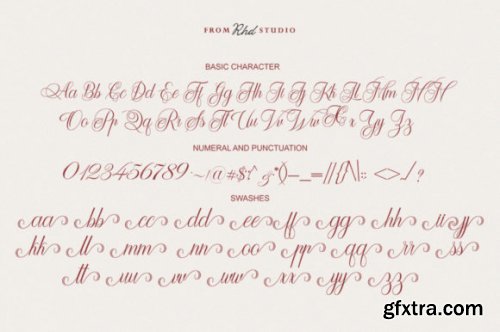 FROM Rhd STUDIO
BASIC CHARACTER
Aa Bb Cc Dd Ee Ff Gg Hh Ii Jj Kk Ll Mm Nn
Oo Pp Qq Rr Ss Tt Uu Vv Ww Xx Yy Zz
NUMERAL AND PUNCTUATION
0123456789
SWASHES
aa bb cc dd ee ff gg hh ii jj
kk ll mm nn oo pp qq rr ss
tt uu vv ww xx yy zz
gfxtra.com